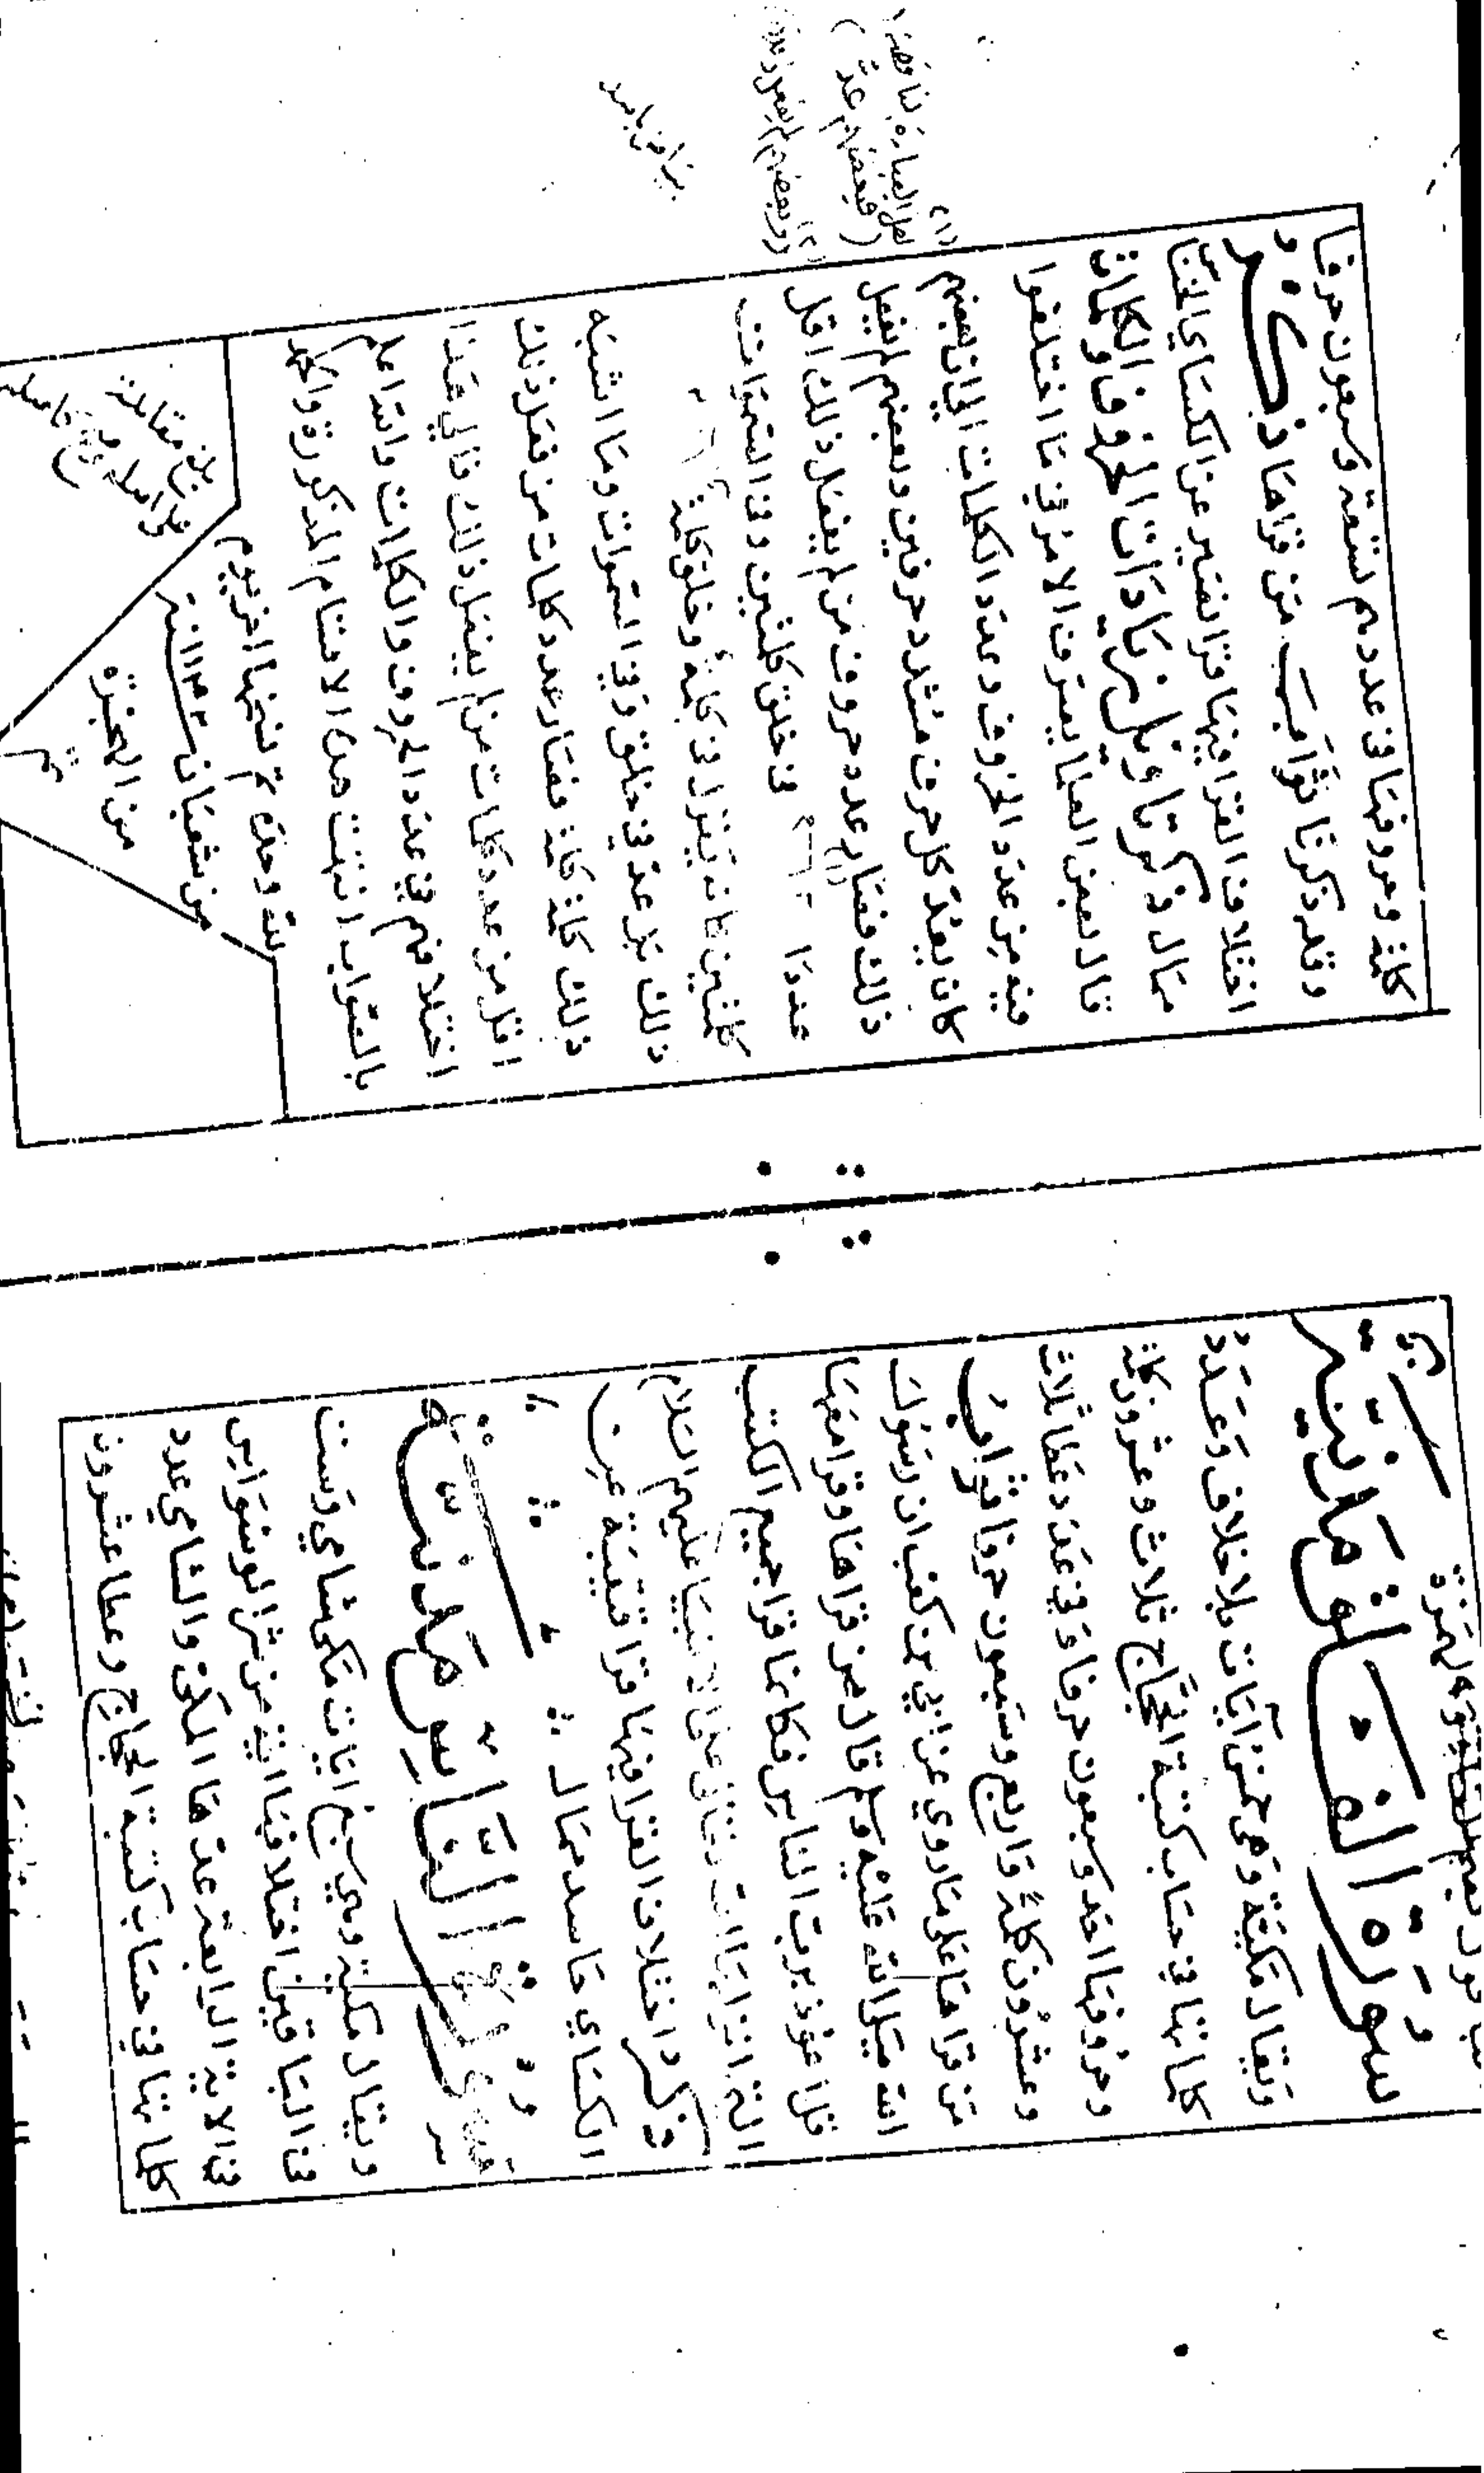 سورة الفلق مدنية
ويقال مكية وهي خمس آيات بلا خلاف وعدد
كلماتها في حساب كتبة الحجاج ثلاث وعشرون كلمة
وحروفها احد وسبعون حرفا وفي عدد عطا ثلاث
وعشرون كلمة واربع وسبعون حرفا ثواب
من قراها على ما روي عن ابي بن كعب ان رسول
الله صلى الله عليه وسلم قال من قراها وقرا معها
قل اعوذ برب الناس فكانما قرا جميع الكتب
التي انزلها الله تعالى على الانبيا عليهم السلام
ذكر اختلاف القرا فيها قرا قتيبة عن
الكساي حاسد ممال
سورة الناس مدنية
ويقال مكية وهي سبع ايات مكي شامي وست
في الباقين اختلافها اية من شر الوسواس
في الاية الرابعة عدها المكي والشامي عدد
كلماتها في حساب كتبة الحجاج وعطا عشرون
كلمة وحروفها في عددهم تسعة وسبعون حرفا
وقد ذكرنا ثواب من قراها ذكر
اختلاف القرا فيها قرا نصير عن الكساي الناس
ممال ذكر تاويل زيادات الحروف والكلمات
قال بعض العلما يعرف الامر في ما اختلفوا
فيه من عدد الحروف وعدد الكلمات الى ان بعضهم
كان يعد كل حرف مشدد حرفين وبعضهم لم يفعل
ذلك فصار عدد حروف من لم يفعل ذلك اقل
عددا في خلق كلمتين وفي السموات
كلمتين كان يقول في كلمة وخلق كلمة
ذلك بل عد في خلق وفي السموات وما اشبه
ذلك كلمة كلمة فصار عدد كلمات من فعل ذلك
اقل من عدد كلمات من لم يفعل ذلك فالى هذا
اختلافهم في عدد الحروف والكلمات والله اعلم
بالصواب انتهت هذه الاقسام المذكورة والحمد
لله وحده تم نسخها اخر يوم
من شعبان
من الهجرة
تم